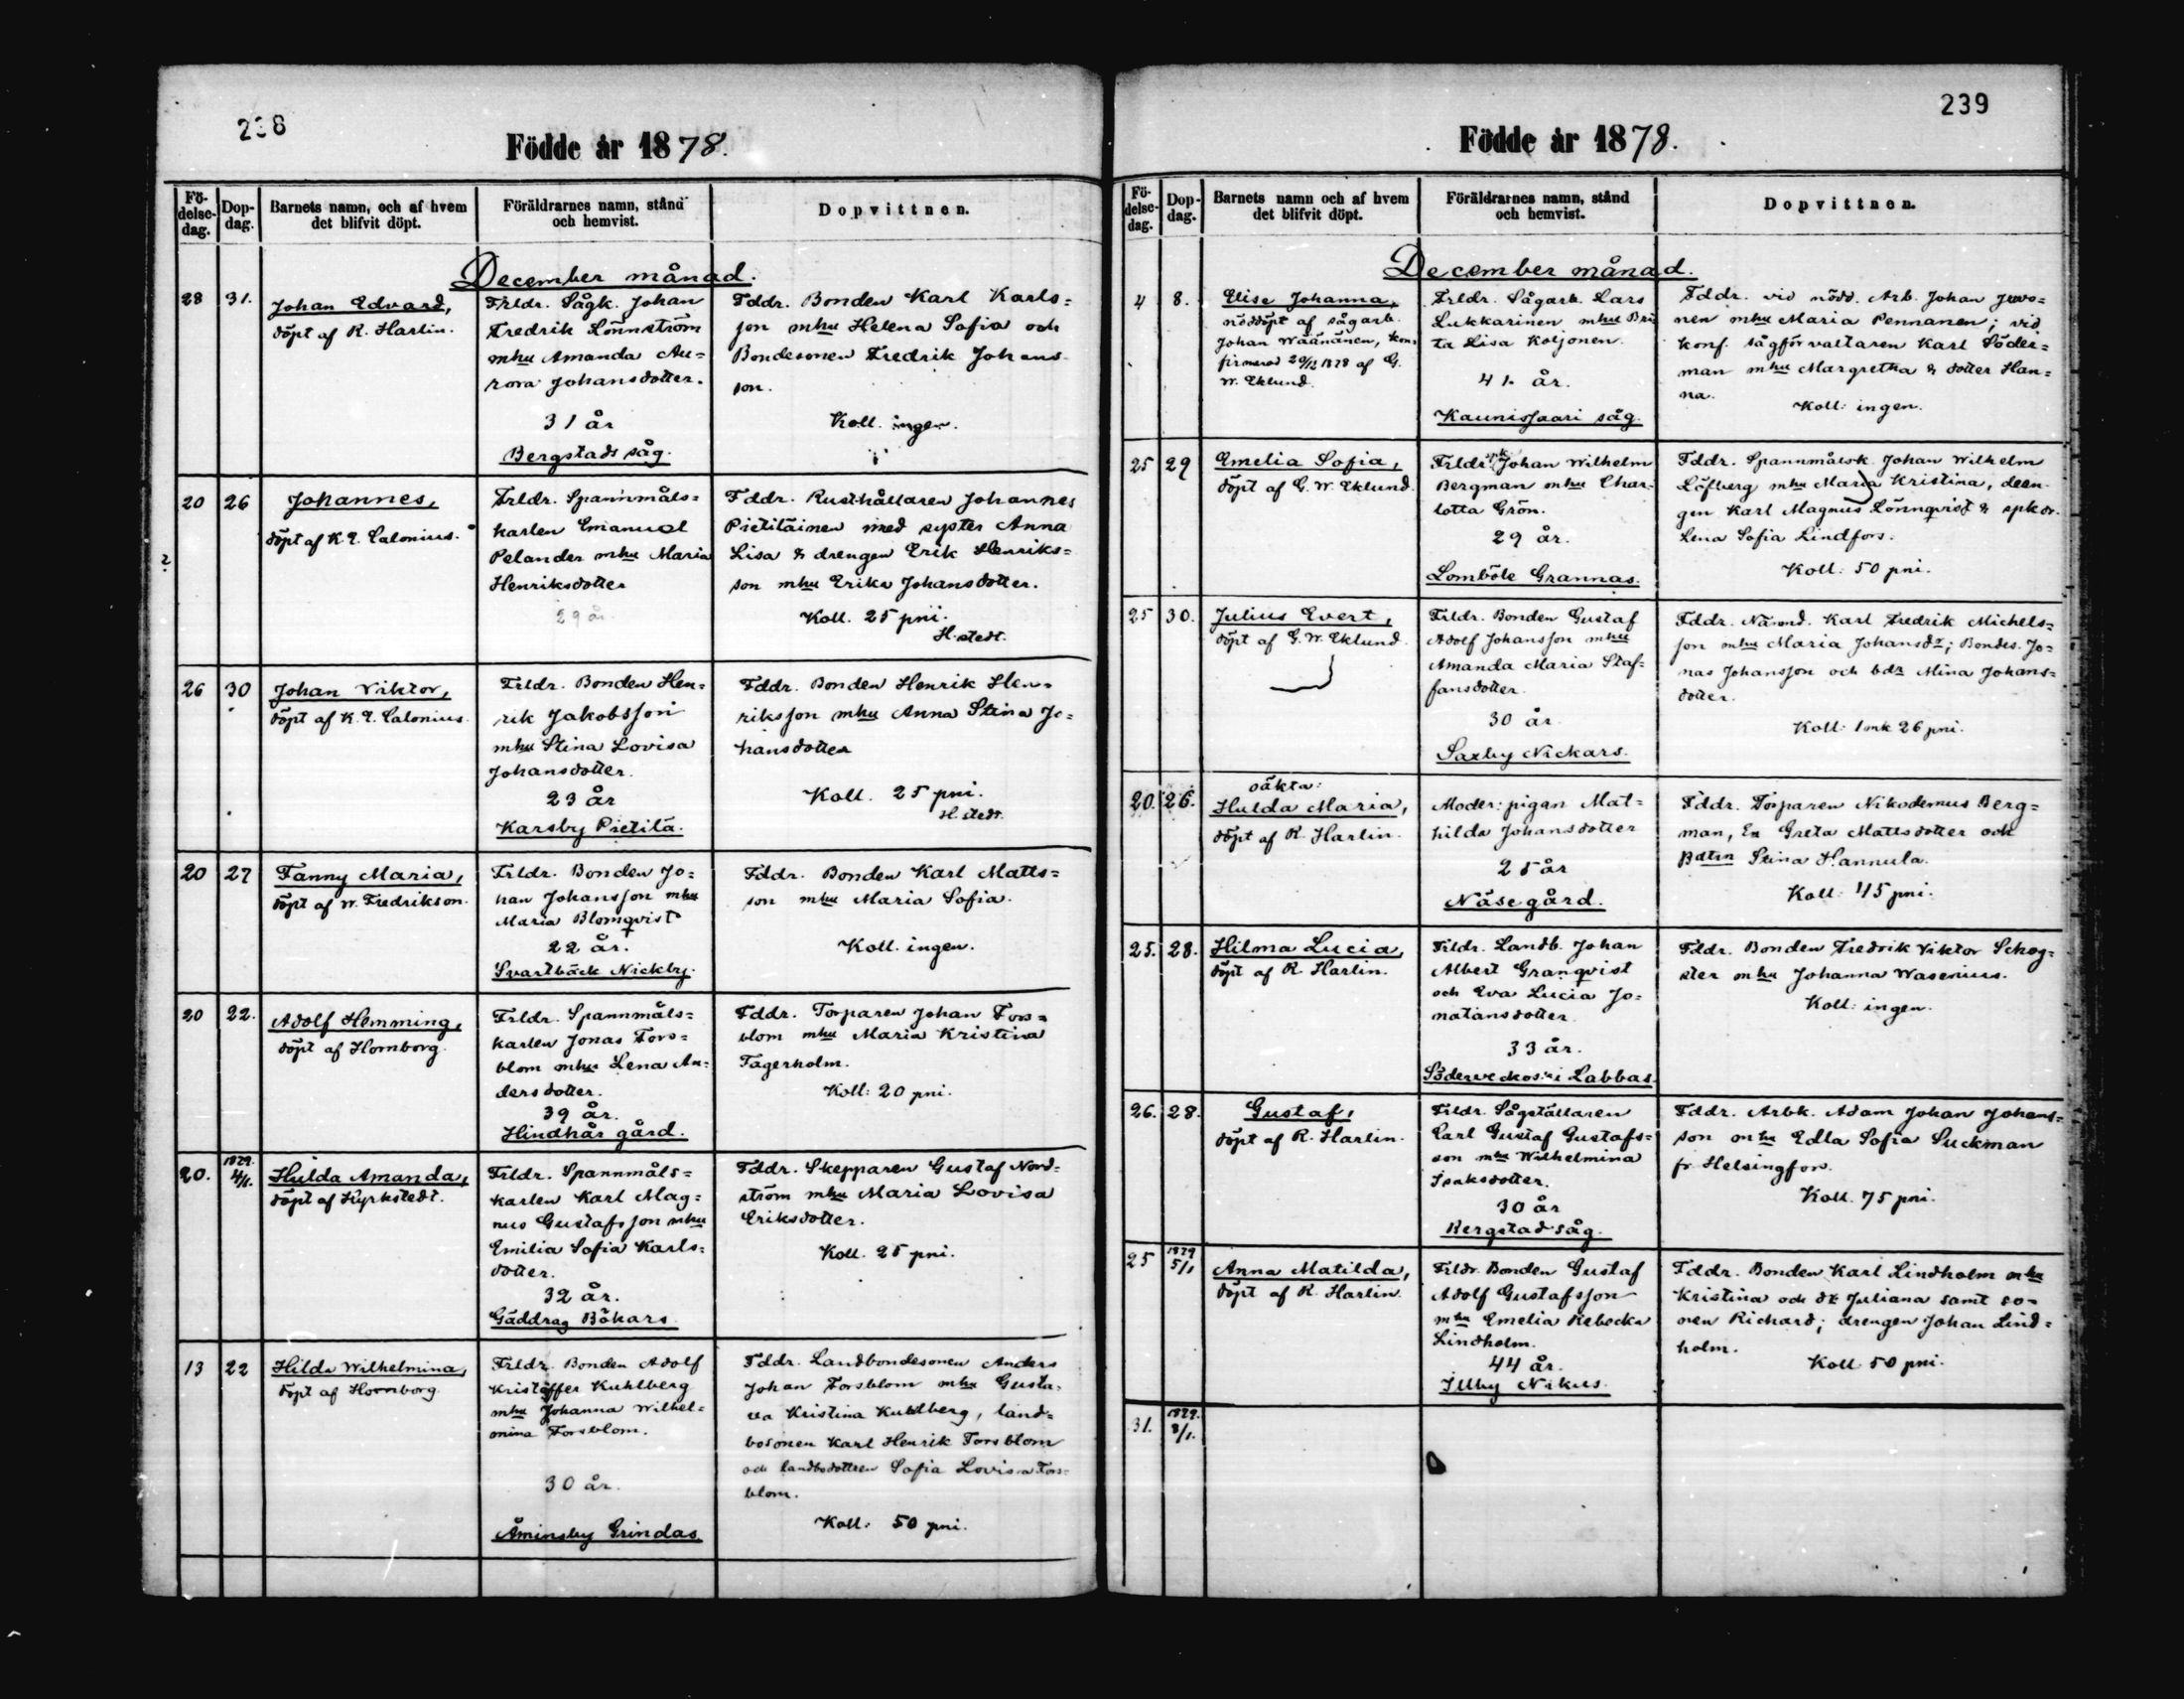 238
Födde år 1878.
Fö-
delse-
dag.
Dop-
dag.
Barnets namn, och af hvem
det blifvit döpt.
Föräldrarnes namn, stånd
och hemvist.
Dopvittnen.
December månad.
28
31.
Johan Edvard,
döpt af R. Harlin.
Frldr. Sågk. Johan
Fredrik Lönnström
mhu Amanda Au=
rora Johansdotter.
31 år
Bergstads såg.
Fddr. Bonden Karl Karls=
son mhu Helena Sofia och
Bondesonen Fredrik Johans
son.
Koll. ingen.
20
26
Johannes,
döpt af K. E. Calonius.
Frldr. Spannmåls=
karlen Emanuel
Pelander mhu Maria
Henriksdotter
29 år
Fddr. Rusthållaren Johannes
Pietiläinen med syster Anna
Lisa & drengen Erik Henriks=
son mhu Erika Johansdotter.
Koll. 25 pni.
H. stedt.
26
30
Johan Viktor,
döpt af K. E. Calonius.
Frldr. Bonden Hen=
rik Jakobsson
mhu Stina Lovisa
Johansdotter.
23 år
Karsby Pietilä.
Fddr. Bonden Henrik Hen=
riksson mhu Anna Stina Jo=
hansdotter
Koll. 25 pni.
H. stedt.
20
27
Fanny Maria,
döpt af W. Fredrikson.
Frldr. Bonden Jo=
han Johansson mhu
Maria Blomqvist
22 år.
Svartbäck Nickby.
Fddr. Bonden Karl Matts=
son mhu Maria Sofia.
Koll. ingen.
20
22.
Adolf Hemming,
döpt af Hornborg.
Frldr. Spannmåls=
karlen Jonas Fors=
blom mhu Lena An=
dersdotter.
39 år.
Hindhår gård.
Fddr. Torparen Johan Fors=
blom mhu Maria Kristina
Fagerholm.
Koll: 20 pni.
20.
1879.
4/1.
Hulda Amanda,
döpt af Kyrkstedt.
Frldr. Spannmåls=
karlen Karl Mag=
nus Gustafsson mhu
Emilia Sofia Karls=
dotter.
32 år.
Gäddrag Bökars.
Fddr. Skepparen Gustaf Nord=
ström mhu Maria Lovisa
Eriksdotter.
Koll. 25 pni.
13
22
Hilda Wilhelmina,
döpt af Hornborg.
Frldr. Bonden Adolf
Kristoffer Kuhlberg
mhu Johanna Wilhel=
mina Forsblom.
30 år.
Åminsby Grindas.
Fddr. Landbondesonen Anders
Johan Forsblom mhu Gusta=
va Kristina Kuhlberg, land=
bosonen Karl Henrik Forsblom
och landbodottren Sofia Lovisa Fors=
blom.
Koll: 50 pni.
239
Födde år 1878.
Fö-
delse-
dag.
Dop-
dag.
Barnets namn och af hvem
det blifvit döpt.
Föräldrarnes namn, stånd
och hemvist.
Dopvittnen.
December månad.
4
8.
Elise Johanna,
nöddöpt af sågarb.
Johan Wäänänen, kon=
firmerad 29/12 1878 af G.
W. Eklund.
Frldr. Sågarb. Lars
Lukkarinen mhu Bri
ta Lisa Koljonen.
41 år.
Kaunissaari såg.
Fddr. vid nödd. Arb. Johan
nen mhu Maria Pennanen; vid
konf. sågförvaltaren Karl Söder=
man mhu Margretha & dotter Han=
na.
Koll: ingen.
25
29
Emelia Sofia,
döpt af G. W. Eklund.
Frldr. spk Johan Wilhelm
Bergman mhu Char=
lotta Grön.
29 år.
Lomböle Grannas.
Fddr. Spannmålsk. Johan Wilhelm
Löfberg mhu Maria Kristina, dren=
gen Karl Magnus Lönnqvist & spkdr.
Lena Sofia Lindfors.
Koll: 50 pni.
25
30.
Julius Evert,
döpt af G. W. Eklund.
Frldr. Bonden Gustaf
Adolf Johansson mhu
Amanda Maria Staf=
fansdotter.
30 år
Saxby Nickars.
Fddr. Nämnd. Karl Fredrik Michels=
son mhu Maria Johansdr; Bondes. Jo=
nas Johansson och bdr Mina Johans=
dotter.
Koll: 1 mk 26 pni.
20.
26.
oäkta:
Hulda Maria,
döpt af R. Harlin.
Moder: pigan Mat=
hilda Johansdotter
25 år
Näse gård.
Fddr. Torparen Nikodemus Berg=
man, Ea Greta Mattsdotter och
Bdtrn Stina Hannula.
Koll: 45 pni.
25.
28.
Hilma Lucia,
döpt af R. Harlin.
Frldr. Landb. Johan
Albert Granqvist
och Eva Lucia Jo=
natansdotter.
33 år.
Söderveckoski Labbas.
Fddr. Bonden Fredrik Viktor Schog=
ster mhu Johanna Wasenius.
Koll: ingen.
26.
28.
Gustaf,
döpt af R. Harlin.
Frldr. Sågställaren
Carl Gustaf Gustafs=
son mhu Wilhelmina
Isaksdotter.
30 år
Bergstad såg.
Fddr. Arbk. Adam Johan Johans=
son mhu Edla Sofia Suckman
fr. Helsingfors.
Koll. 75 pni.
25
1879
5/1
Anna Matilda,
döpt af R. Harlin.
Frldr. Bonden Gustaf
Adolf Gustafsson
mhu Emelia Rebecka
Lindholm.
44 år.
Illby Nikus.
Fddr. Bonden Karl Lindholm mhu
Kristina och dr Juliana samt so=
nen Richard; drengen Johan Lind=
holm.
Koll 50 pni.
31.
1879.
3/1.